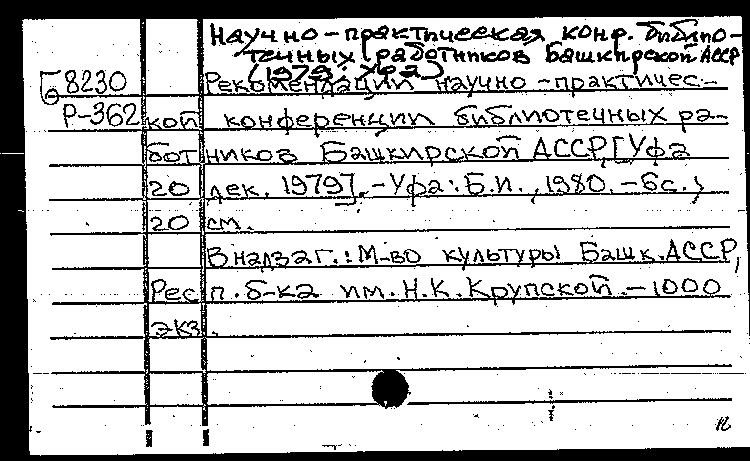 Научно-практическая конф. библио-
течных работников Башкирской АССР
(1979; Уфа)
Б8230
Рекомендации научно-практичес-
Р-362 кой конференции библиотечных ра-
ботников Башкирской АССР, [Уфа
20 дек. 1979]. - Уфа: Б.и., 1980. - 6с.;
20 см.
В надзаг.: М-во культуры Башк. АССР,
Респ. б-ка им. Н.К. Крупской. - 1000
экз.
12